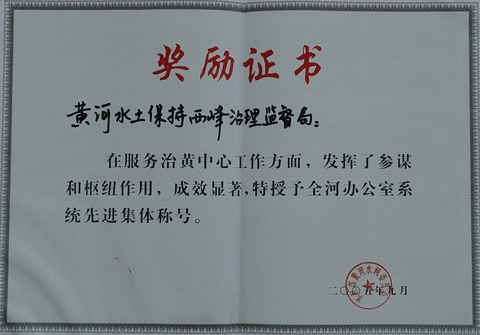 奖励证书
黄河水土保持西峰治理监督局:
在服务治黄中心工作方面，发挥了参谋
和枢纽作用，成效显著，特授予全河办公室系
统先进集体称号。
二〇〇五年九月